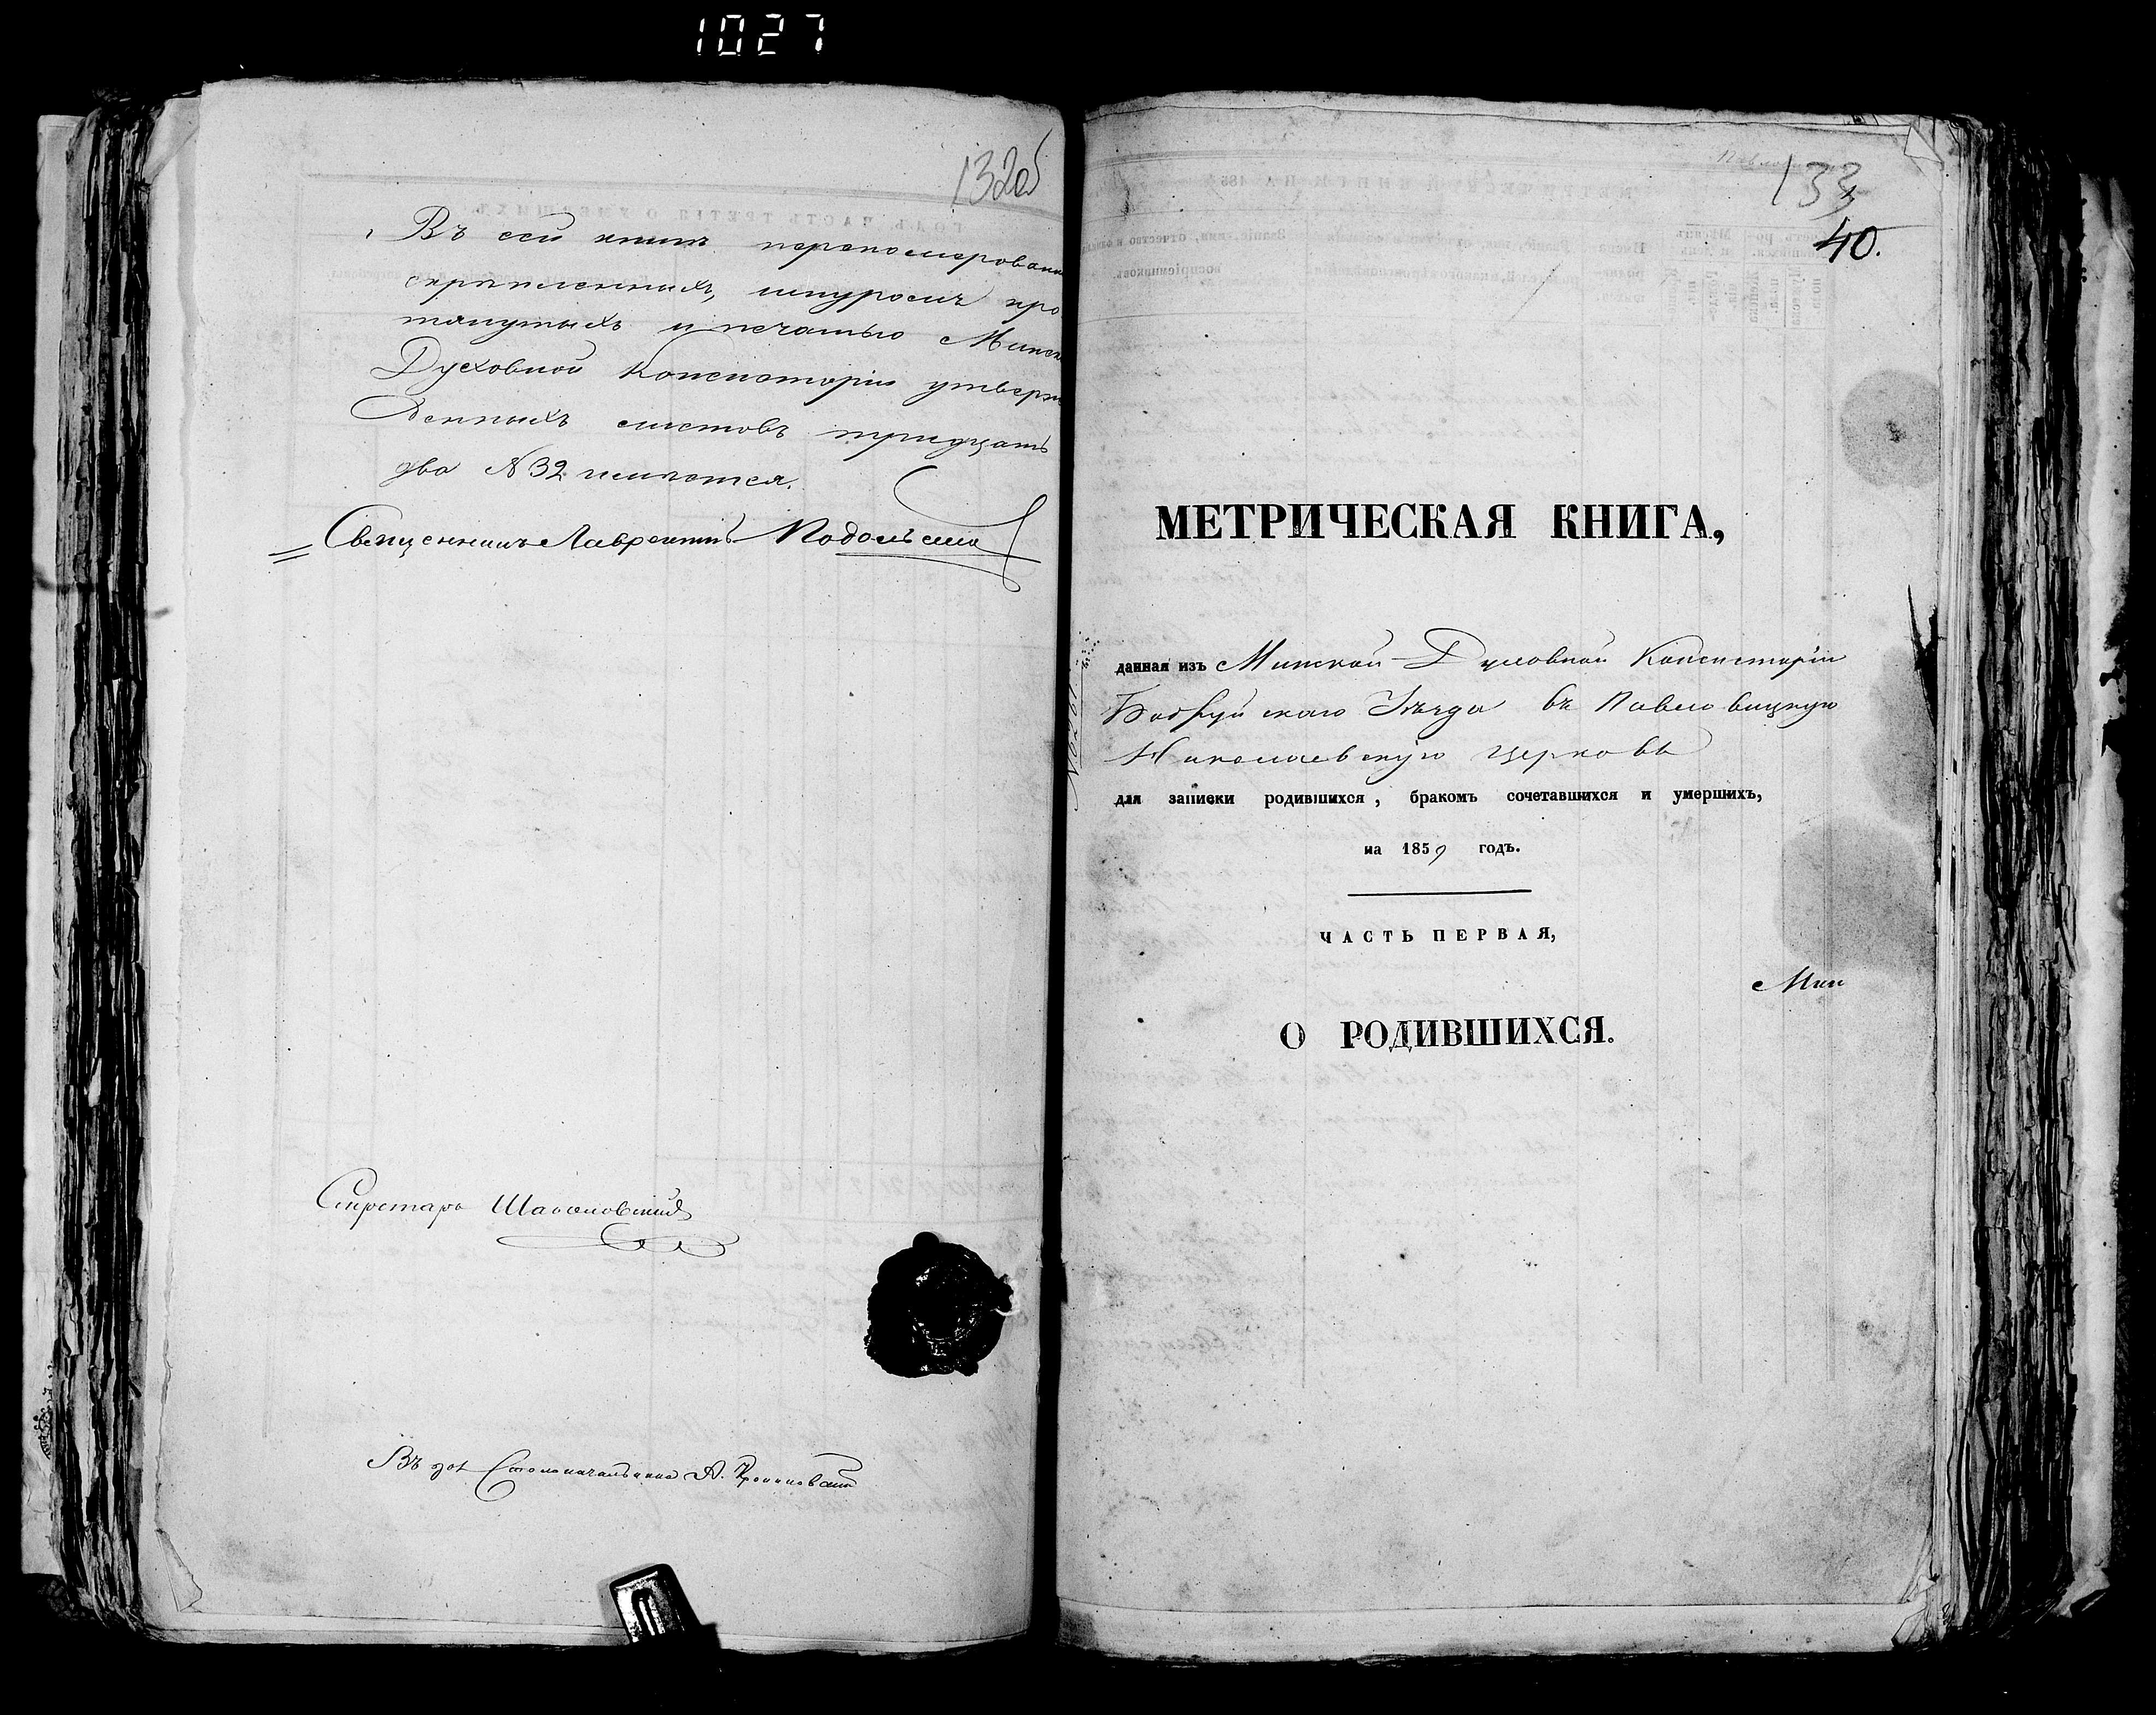 1027
132об
Въ сей книгѣ перенумерован
скрѣпленныхъ, шнуромъ про
тянутыхъ и печатью Минск
Духовной Консисторіи утверж
денныхъ листовъ тридцать
два №32 имѣется.
Священникъ Лаврентій Подольскій
Секретарь
Въ дол Столоначальника А.
133
40.
МЕТРИЧЕСКАЯ КНИГА,
данная изъ Минской Духовной Консисторіи
Бобруйскаго Уѣзда въ Павловицкую
Николаевскую церковь
для записки родившихся, бракомъ сочетавшихся и умершихъ,
на 1859 годъ.
ЧАСТЬ ПЕРВАЯ,
Мин
О РОДИВШИХСЯ.